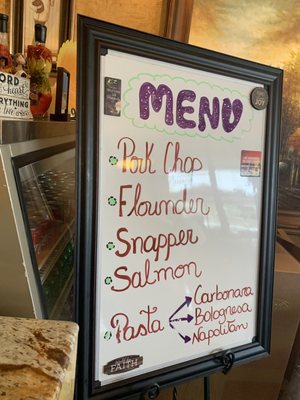 MENU
Pork Chop
Flounder
Snapper
Salmon
Pasta
Carbonara
Bolognesa
Napolitan
FAITH
JOY
EVERYTHING